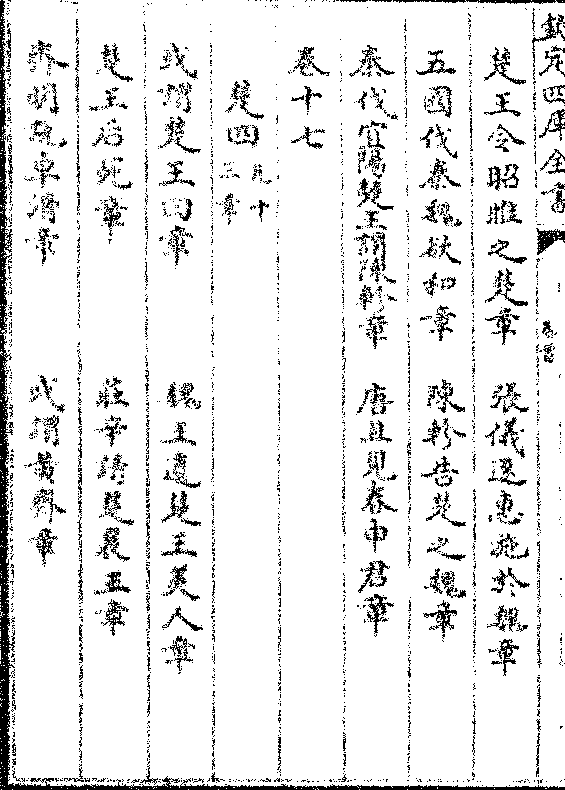 欽定四庫全書
卷首
楚王令昭睢之楚章　張儀逐惠施於魏章
五國伐秦魏欲和章　陳軫告楚之魏章
秦伐宜陽楚王謂陳軫章　唐且見春申君章
卷十七
楚四凡十三章
或謂楚王曰章　魏王遺楚王美人章
楚王后死章　莊辛楚襄王章
齊明説卓滑章　或謂黃齊章